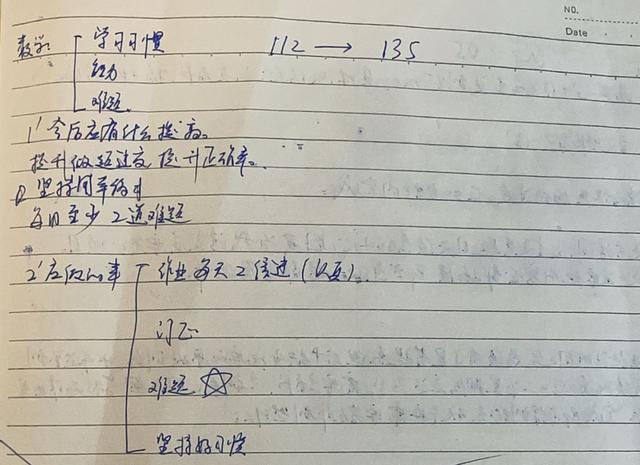 NO.
Date
数学: 学习习惯 112 → 135
能力
难题
1' 今后应有什么提高。
提升做题速度 提升正确率。
坚持周年
每日至少2道难题
2' 应做的事 作业每天2倍速
订正
难题 ☆
坚持好习惯